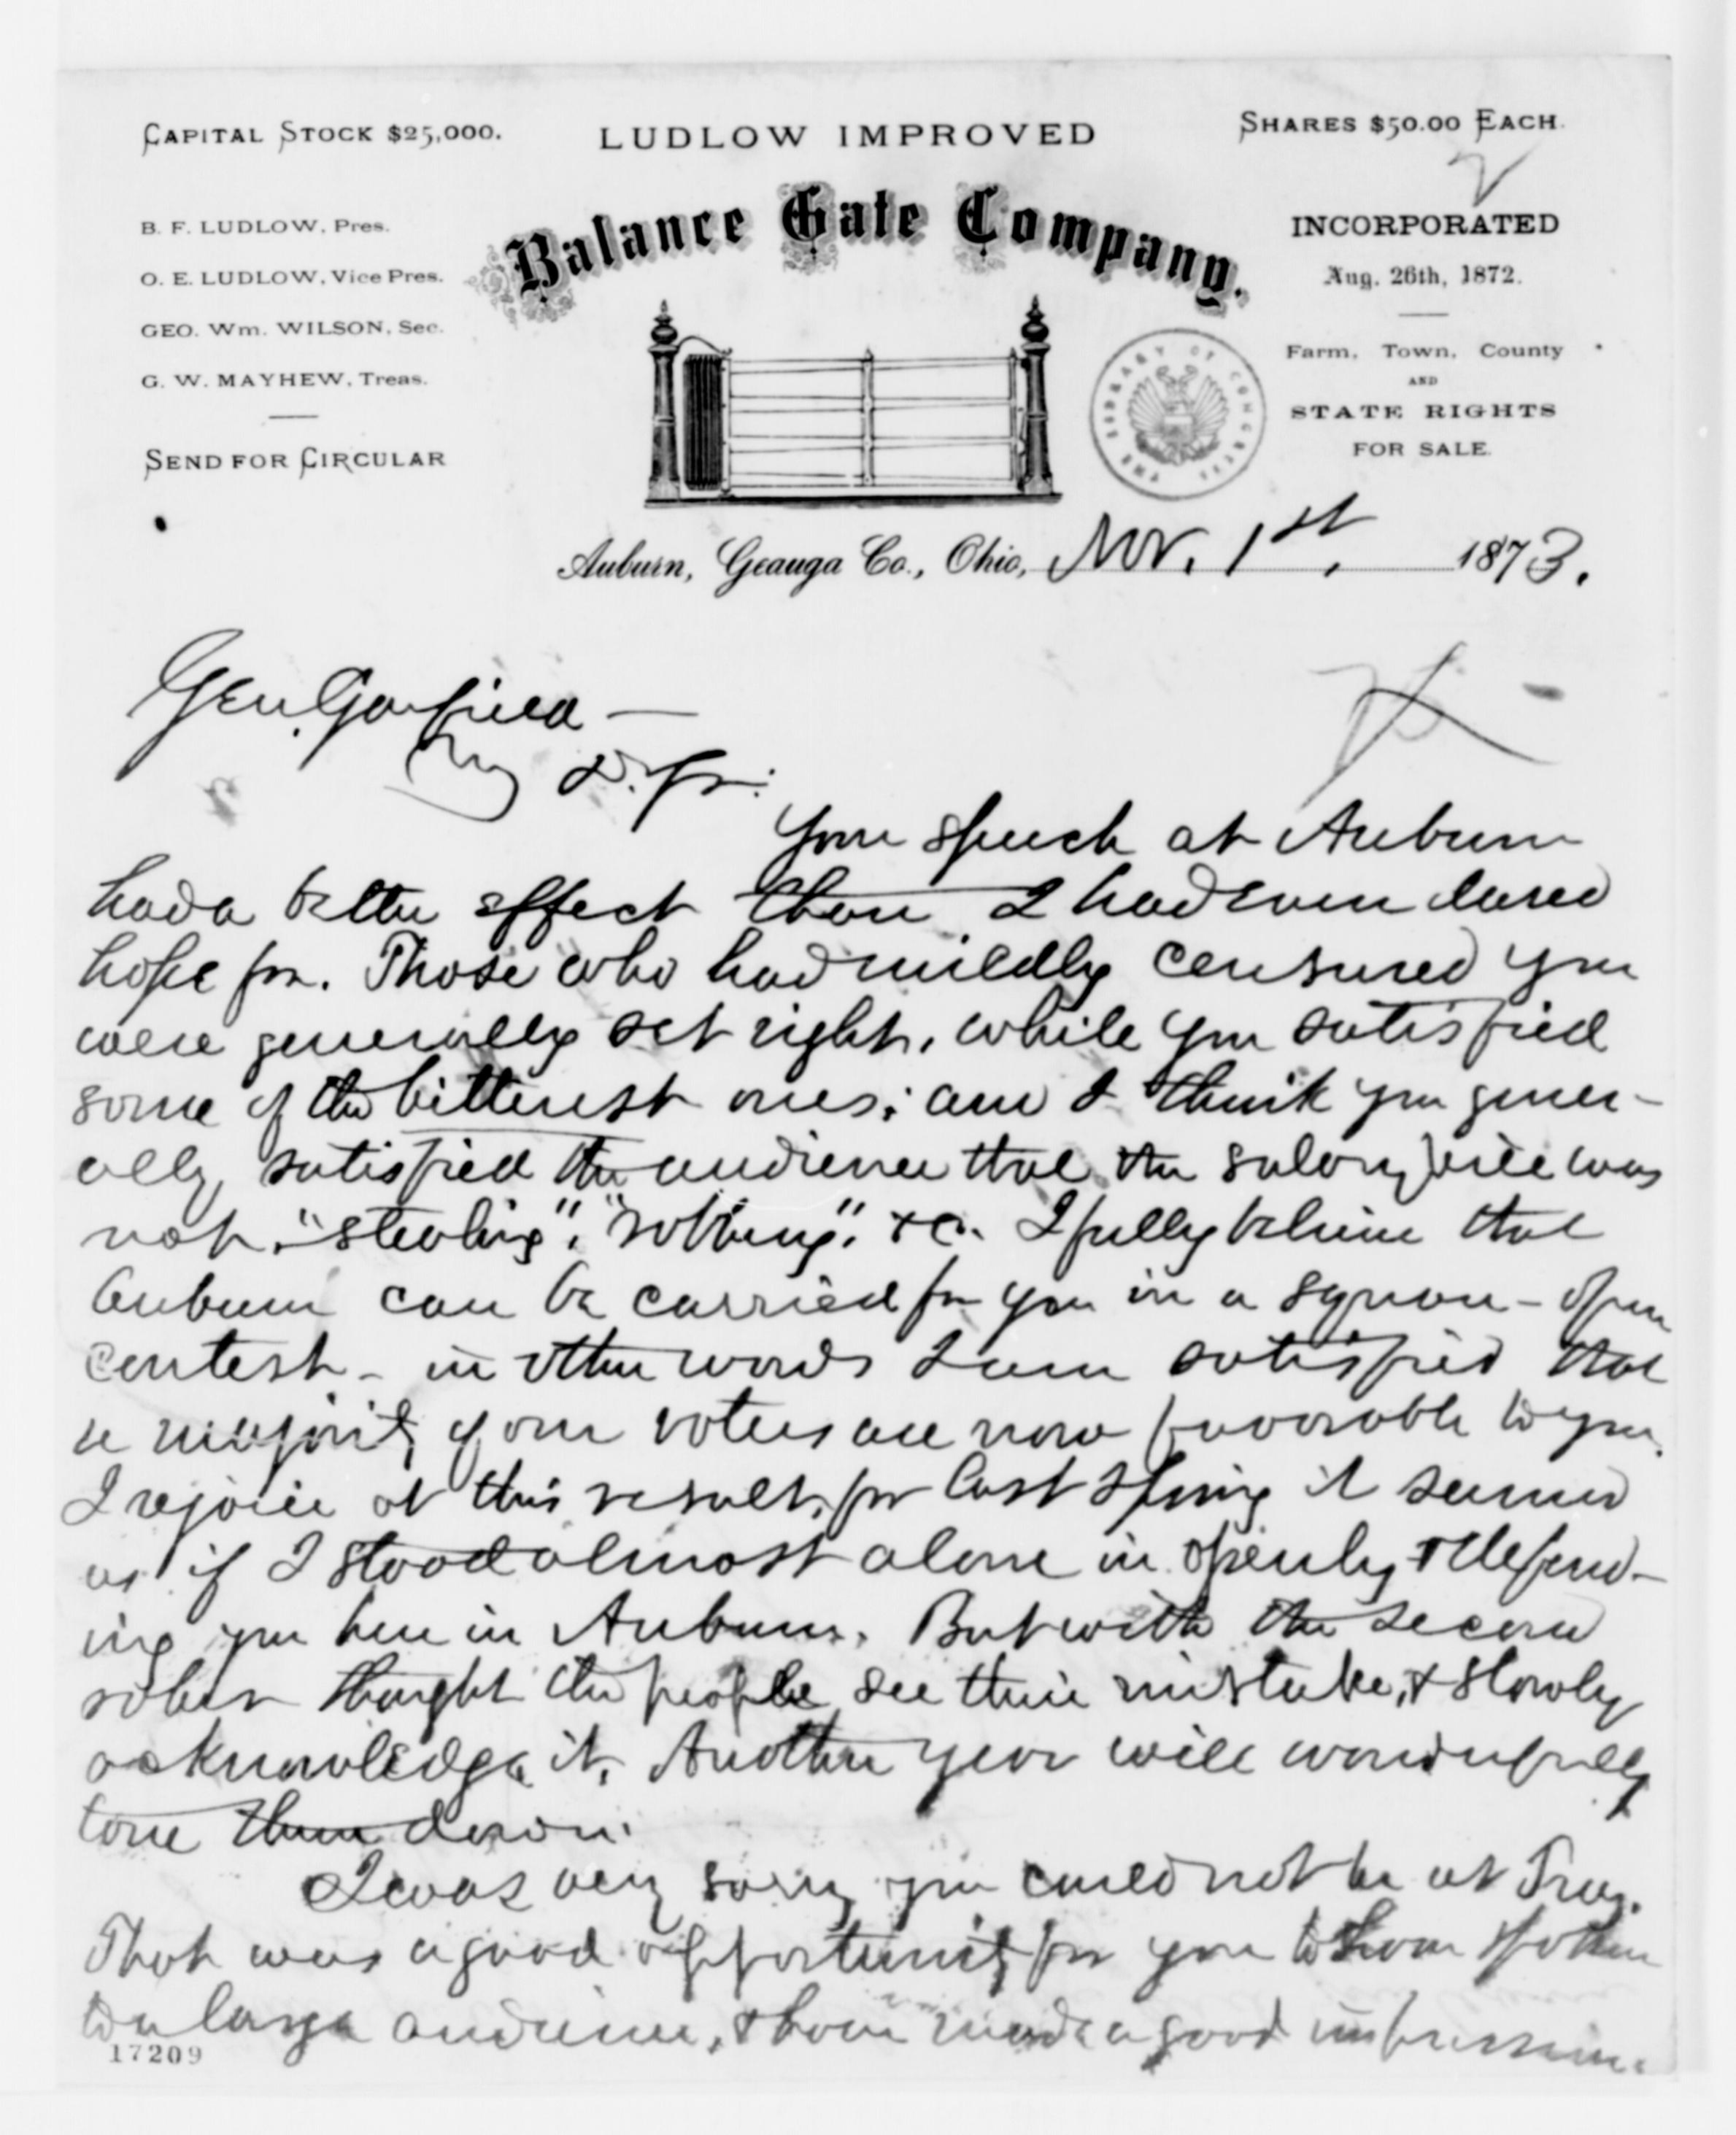 CAPITAL STOCK $25,000.
LUDLOW IMPROVED
SHARES $50.00 EACH.
Balance Gate Company.
B. F. LUDLOW, Pres.
O. E. LUDLOW, Vice Pres.
GEO. Wm. WILSON, Sec.
G. W. MAYHEW, Treas.
SEND FOR CIRCULAR
INCORPORATED
Aug. 26th, 1872.
Farm, Town, County
AND
STATE RIGHTS
FOR SALE.
THE LIBRARY OF CONGRESS
Auburn, Geauga Co., Ohio, Nov. 1st, 1873.
Gen. Garfield —
My D. Sir:
Your speech at Auburn
had a better effect than I had even dared
hope for. Those who had mildly censured you
were generally set right, while you satisfied
some of the bitterest ones; and I think you gener-
ally satisfied the audience that the salary bill was
not "stealing", "robbing", &c. I fully believe that
Auburn can be carried for you in a square-open
contest – in other words I am satisfied that
a majority of our voters are now favorable to you.
I rejoice at this result, for last spring it seemed
as if I stood almost alone in openly defend-
ing you here in Auburn. But with the second
sober thought the people see their mistake, & slowly
acknowledge it. Another year will wonderfully
tone them down.
I was very sorry you could not be at Troy.
That was a good opportunity for you to have spoken
to a large audience, & have made a good impression.
17209